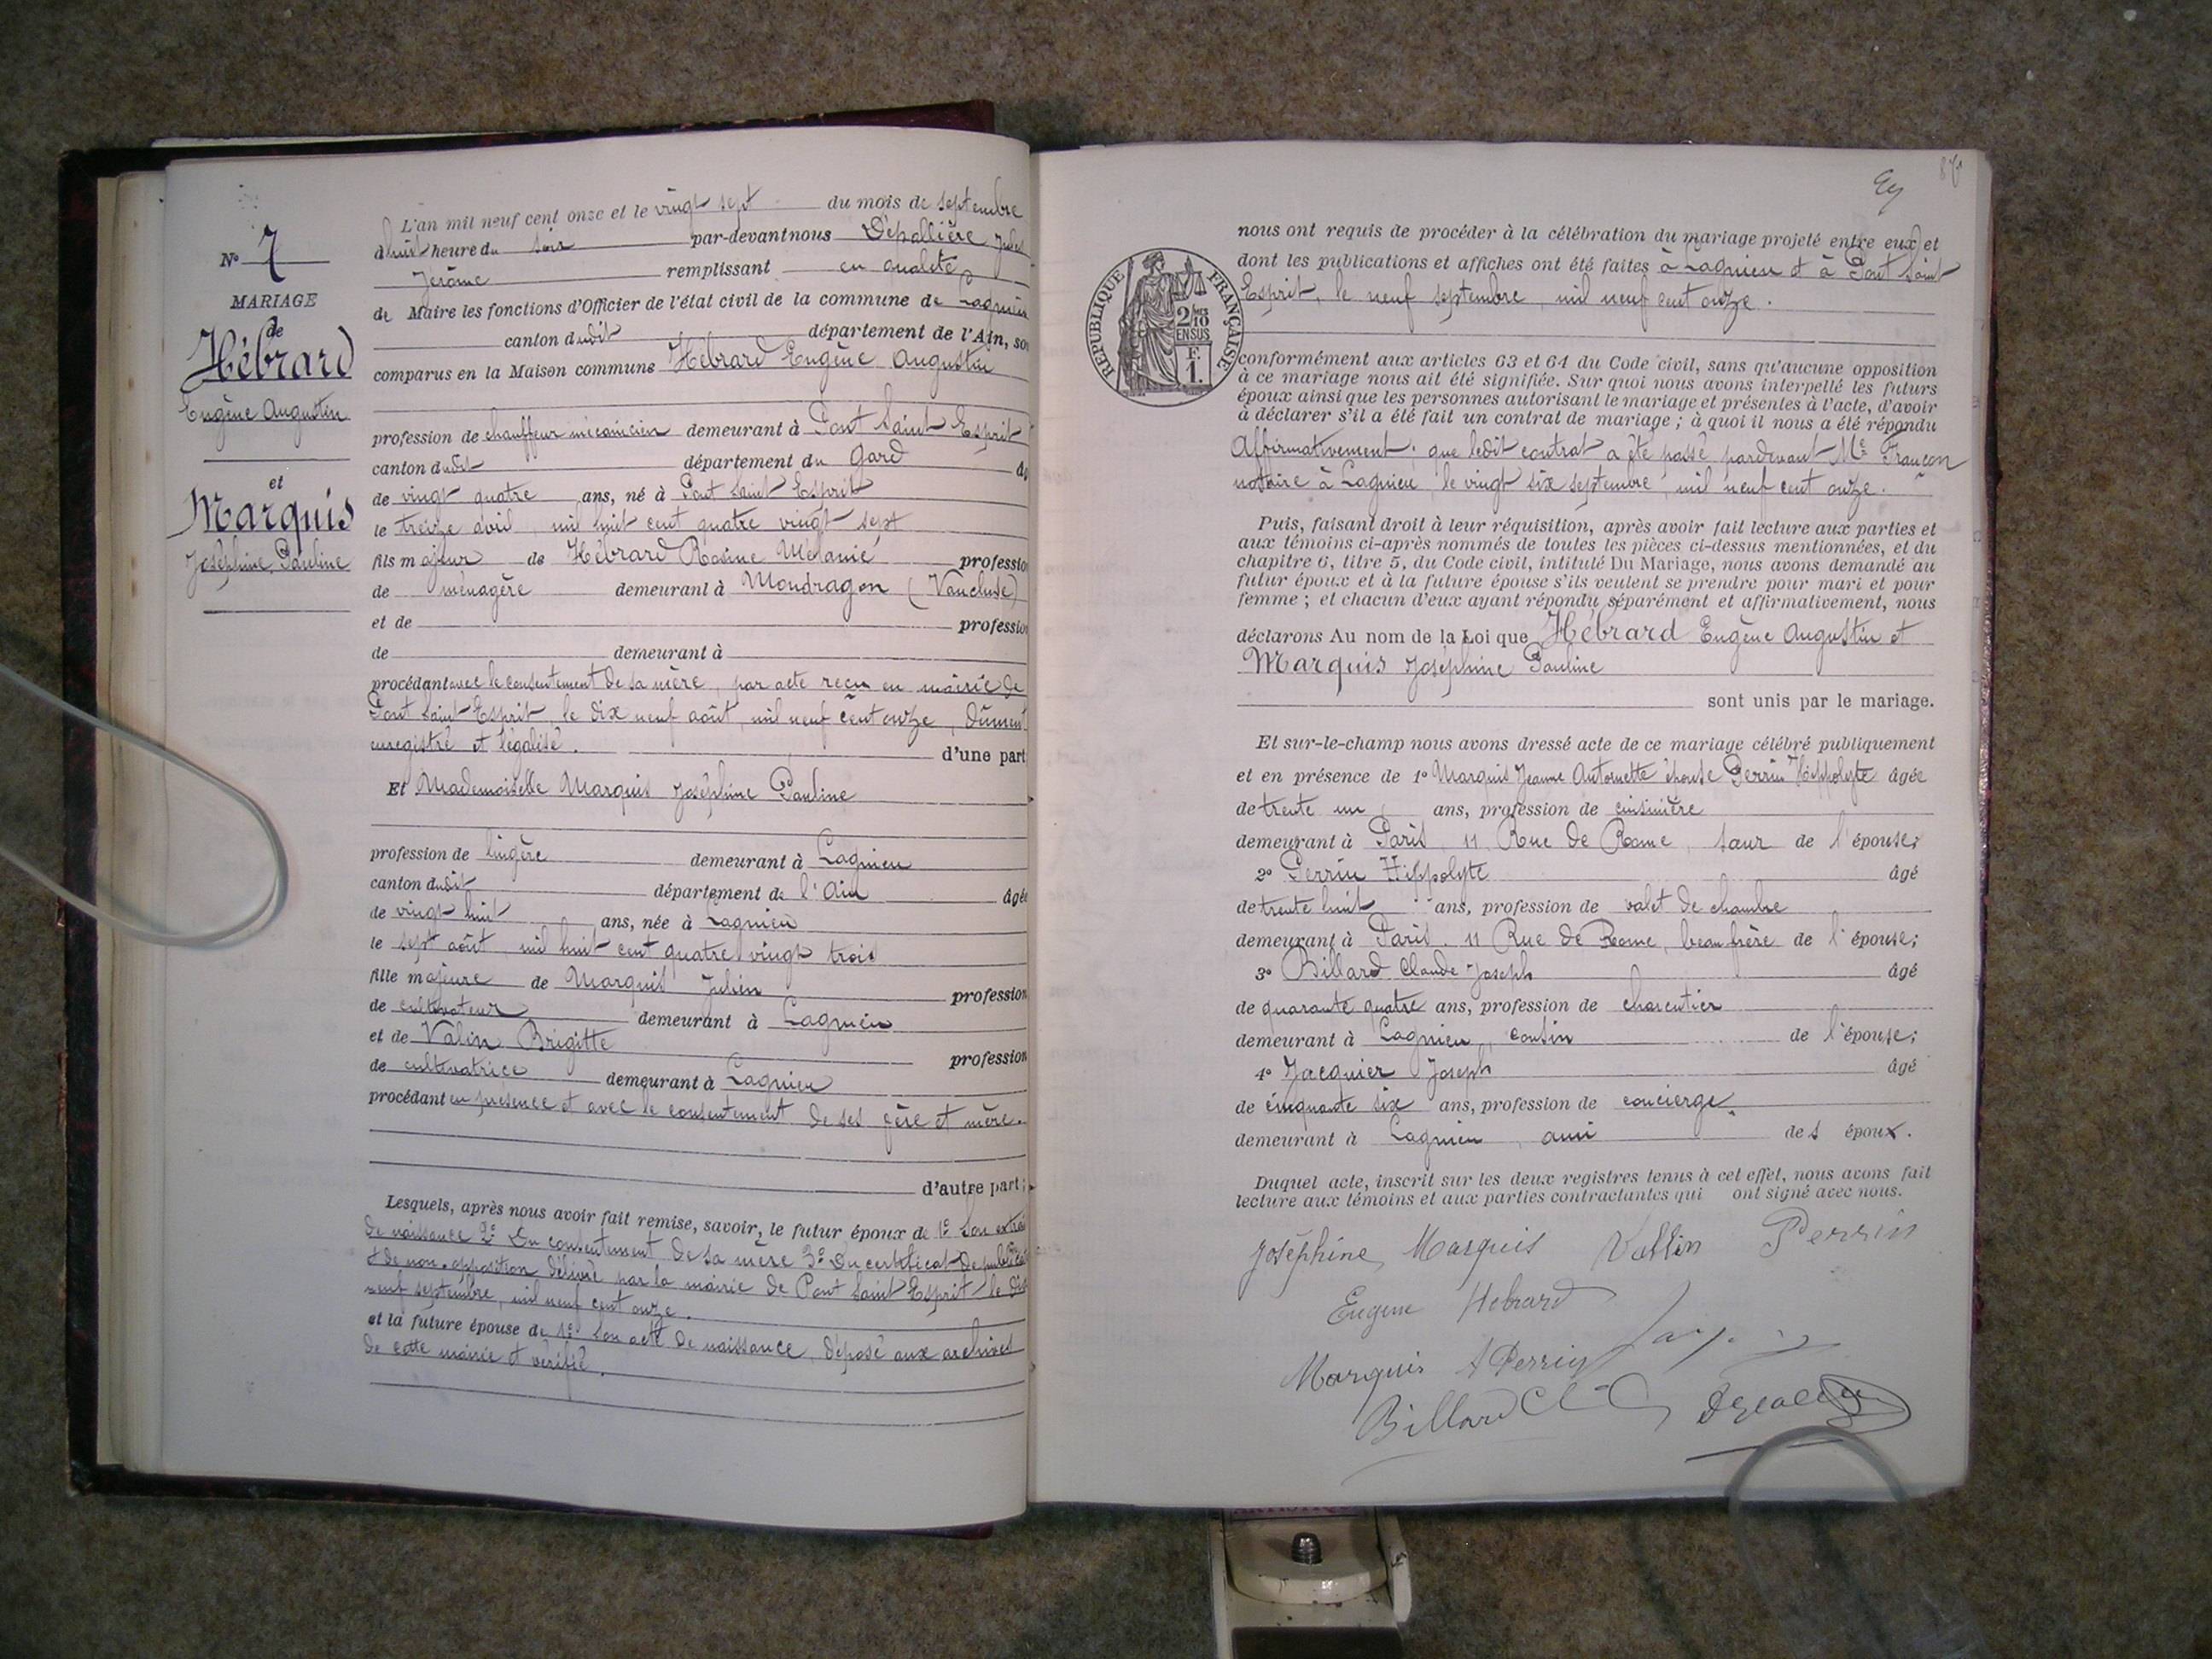 N° 7
MARIAGE
de
Hébrard
Eugène Augustin
et
Marquis
Joséphine Pauline
L'an mil neuf cent onze et le vingt sept du mois de septembre
à huit heure du soir par-devant nous Dépallière Jules
Jérôme remplissant en qualité
de Maire les fonctions d'Officier de l'état civil de la commune de Lagnieu
canton dudit département de l'Ain, so
comparus en la Maison commune Hébrard Eugène Augustin
profession de chauffeur mécanicien demeurant à Pont Saint Esprit
canton dudit département du Gard
de vingt quatre ans, né à Pont Saint Esprit
le treize avril, mil huit cent quatre vingt sept
fils majeur de Hébrard Rosine Mélanie professio
de ménagère demeurant à Mondragon (Vaucluse)
et de professio
de demeurant à
procédant avec le consentement de sa mère, par acte reçu en mairie de
Pont Saint-Esprit, le dix neuf août, mil neuf cent onze, dûment
enregistré et légalisé. d'une part
Et Mademoiselle Marquis Joséphine Pauline
profession de lingère demeurant à Lagnieu
canton dudit département de l'Ain âgée
de vingt huit ans, née à Lagnieu
le sept août, mil huit cent quatre vingt trois
fille majeure de Marquis Julien profession
de cultivateur demeurant à Lagnieu
et de Valin Brigitte profession
de cultivatrice demeurant à Lagnieu
procédant en présence et avec le consentement de ses père et mère.
d'autre part ;
Lesquels, après nous avoir fait remise, savoir, le futur époux de 1° Son extrai
de naissance 2° Du consentement de sa mère 3° Du certificat de
et de non-opposition délivré par la mairie de Pont Saint-Esprit le dix
neuf septembre, mil neuf cent onze.
et la future épouse de 1° Son acte de naissance, déposé aux archives
de cette mairie et vérifié.
REPUBLIQUE FRANÇAISE
2/10
EN SUS
F.
1.
nous ont requis de procéder à la célébration du mariage projeté entre eux et
dont les publications et affiches ont été faites à Lagnieu et à Pont Saint
Esprit, le neuf septembre, mil neuf cent onze.
conformément aux articles 63 et 64 du Code civil, sans qu'aucune opposition
à ce mariage nous ait été signifiée. Sur quoi nous avons interpellé les futurs
époux ainsi que les personnes autorisant le mariage et présentes à l'acte, d'avoir
à déclarer s'il a été fait un contrat de mariage ; à quoi il nous a été répondu
Affirmativement ; que ledit contrat a été passé pardevant Me Françon
notaire à Lagnieu, le vingt six septembre, mil neuf cent onze.
Puis, faisant droit à leur réquisition, après avoir fait lecture aux parties et
aux témoins ci-après nommés de toutes les pièces ci-dessus mentionnées, et du
chapitre 6, titre 5, du Code civil, intitulé Du Mariage, nous avons demandé au
futur époux et à la future épouse s'ils veulent se prendre pour mari et pour
femme ; et chacun d'eux ayant répondu séparément et affirmativement, nous
déclarons Au nom de la Loi que Hébrard Eugène Augustin et
Marquis Joséphine Pauline
sont unis par le mariage.
Et sur-le-champ nous avons dressé acte de ce mariage célébré publiquement
et en présence de 1° Marquis Jeanne Antoinette épouse Perrin Hippolyte âgée
de trente un ans, profession de cuisinière
demeurant à Paris, 11 Rue de Rome, sœur de l'épouse;
2° Perrin Hippolyte âgé
de trente huit ans, profession de valet de chambre
demeurant à Paris. 11 Rue de Rome, beau frère de l'épouse;
3° Billard Claude Joseph âgé
de quarante quatre ans, profession de charcutier
demeurant à Lagnieu, cousin de l'épouse;
4° Jacquier Joseph âgé
de cinquante six ans, profession de concierge.
demeurant à Lagnieu, ami des époux.
Duquel acte, inscrit sur les deux registres tenus à cet effet, nous avons fait
lecture aux témoins et aux parties contractantes qui ont signé avec nous.
Joséphine Marquis Vallin Perrin
Eugène Hebrard
Marquis A Perrin
Billard Cl